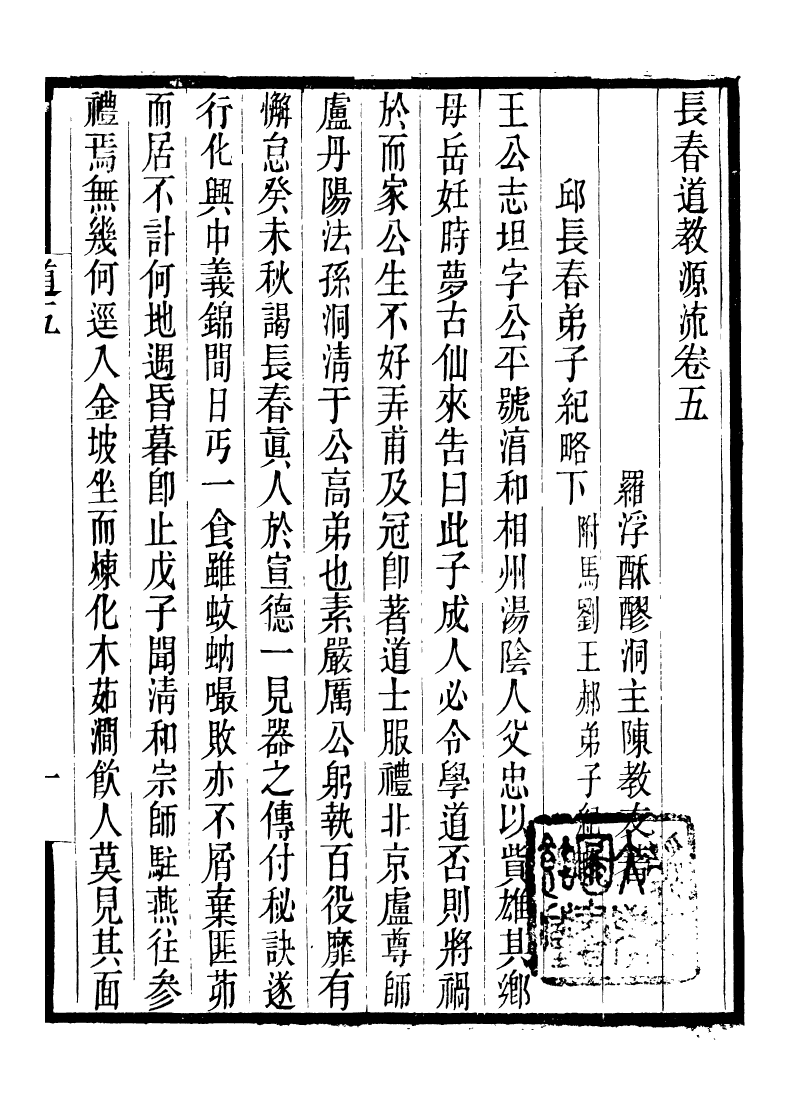 長春道教源流卷五
羅浮酥醪洞主陳教友著
邱長春弟子紀略下 附馬劉王郝弟子紀略
王公志坦字公平號淯和相州湯陰人父忠以貲雄其鄉
母岳妊時夢古仙來告曰此子成人必令學道否則將禍
於而家公生不好弄甫及冠卽著道士服禮北京盧尊師
盧丹陽法孫洞淸于公高弟也素嚴厲公躬執百役靡有
懈怠癸未秋謁長春眞人於宣德一見器之傳付秘訣遂
行化興中義錦間日丐一食雖蚊蚋嘬敗亦不屑棄匪茆
而居不計何地遇昏暮卽止戊子聞淸和宗師駐燕往參
禮焉無幾何逕入金坡坐而煉化木茹澗飮人莫見其面
道五
一